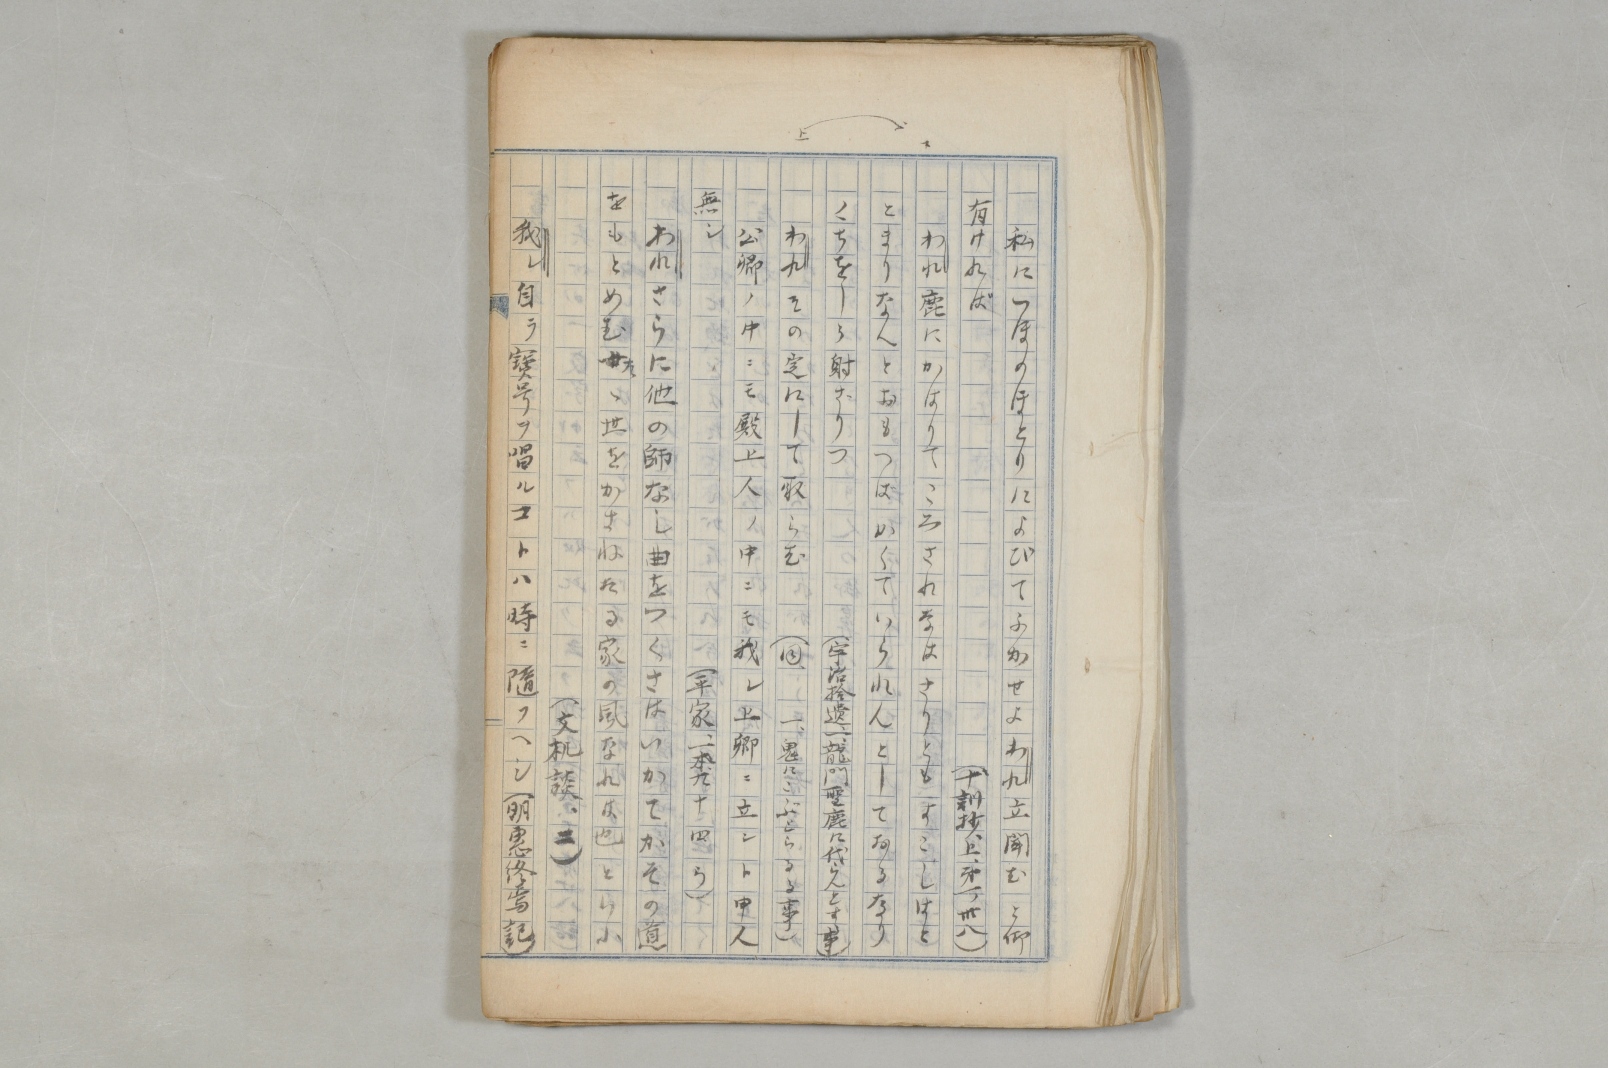 私につぼのほとりによびてふかせよわれ立聞むと仰
有ければ
（十訓抄、上、第一ノ廿八）
われ鹿にかはりてころされなはさりともすこしはと
とまりなんとおもつばかくていられんとしておるなり
くちをしう射ざりつ
（宇治拾遺一、龍門聖鹿に代らんとする事）
われその定にして取らむ
（同、一、鬼にこぶとらるる事）
公卿ノ中ニモ殿上人ノ中ニモ我レ上卿ニ立ント申人
無シ
（平家、一本九十四ら）
われさらに他の師なし曲をつくさはいかてかその道
をもとめむ
世をかさねたる家の風なれは也といふ
（文机談、二）
我レ自ラ寶号ヲ唱ルコトハ時ニ隨フヘシ（明恵終焉記）
上